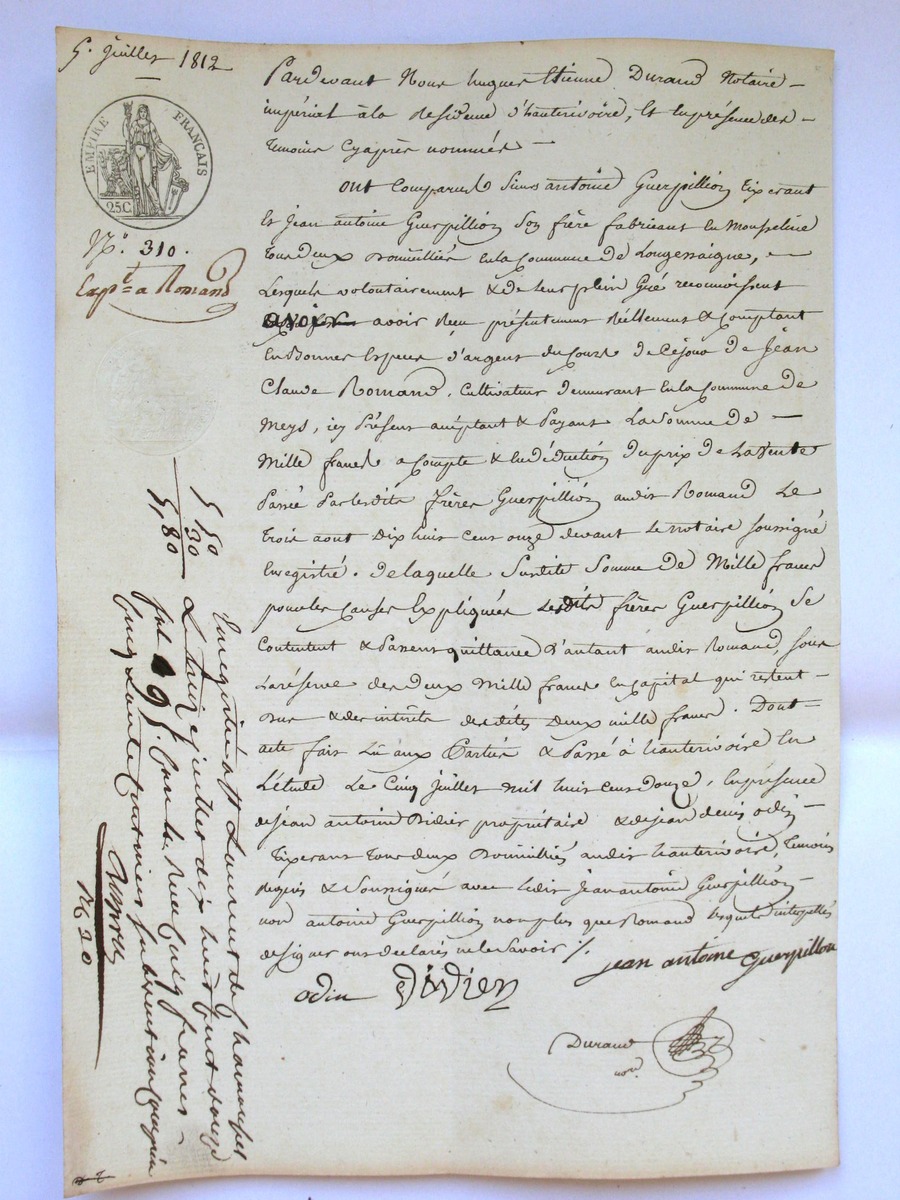 5. Juillet 1812
EMPIRE FRANÇAIS
25C
N.° 310.
Exp.t = a Romand
Pardevant Nous hugues Etienne Durand Notaire –
impérial à la Residence d'hauterivoire, Et en présence des –
temoins Cyaprès nommés –
ont Comparu Srs antoine Guerpillion tixerant
Et Jean antoine Guerpillion Son frère fabricant en Mousseline
tous deux Domicilliés en la Commune de Longessaigne, –
Lesquels volontairement & de leur plein Gré reconoissent
avoir Reçu présentement Réellement & Comptant
En Bonnes Espèces d'argent du Cours de Cejour de Jean
Claude Romand, Cultivateur demeurant En la Commune de
Meys, icy Présent acceptant & Payant La Somme de –
Mille francs a Compte & En déduction du prix de La Vente
Passée Par lesdits frères Guerpillion audit Romand Le
trois aout dix huit Cent onze devant Le notaire soussigné
Enregistré. de laquelle Susdite Somme de Mille francs
pour les Causes Expliquées Lesdits frères Guerpillion Se
Contentent & Passent quittance d'autant audit Romand, sous
La réserve des deux Mille francs En Capital qui restent
Dus & des intérêts desdites Deux mille francs. Dont –
acte fait Lu aux Parties & Passé à hauterivoire En
L'étude Le Cinq Juillet mil huit Cent Douze, En présence
de jean antoine Didier propriétaire & de jean denis odin –
tixerant tous deux Domicilliés audit hauterivoire, temoins
Requis & Soussignés avec Ledit Jean antoine Guerpillion –
non antoine Guerpillion non plus que Romand Lesquels interpellés
de signer ont déclarés ne le Savoir ./.
jean antoine Guerpillon
odin Didier
Durand
not.
5 50
30
5,80
Enregistré à St Laurent de Chamousset
Le huit juillet dix huit cent douze
fol 9 V.° Reçu cinq francs
cinquante centimes subvention comprise
R 30